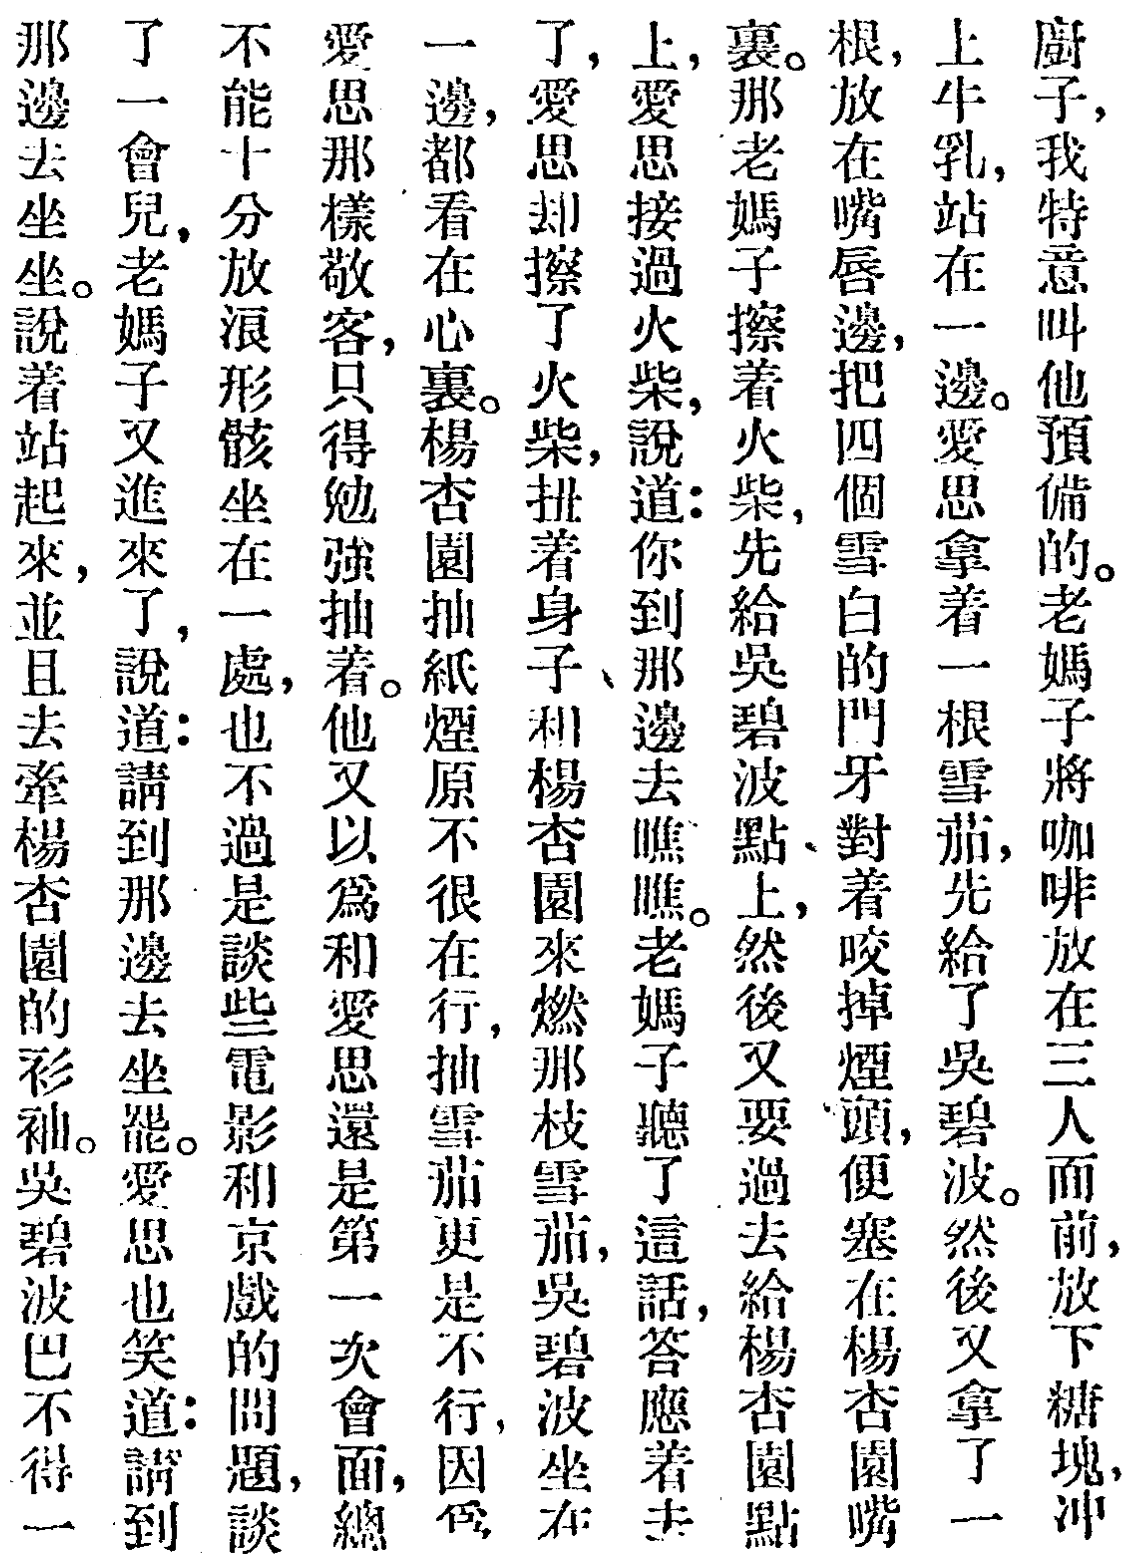 廚子，我特意叫他預備的。老媽子將咖啡放在三人面前，放下糖塊，冲
上牛乳，站在一邊。愛思拿着一根雪茄，先給了吳碧波。然後又拿了一
根，放在嘴唇邊，把四個雪白的門牙對着咬掉煙頭，便塞在楊杏園嘴
裏。那老媽子擦着火柴，先給吳碧波點、上，然後又要過去給楊杏園點
上，愛思接過火柴，說道：你到那邊去瞧瞧。老媽子聽了這話，答應着去
了，愛思却擦了火柴，扭着身子、和楊杏園來燃那枝雪茄，吳碧波坐在
一邊，都看在心裏。楊杏園抽紙煙原不很在行，抽雪茄更是不行，因爲
愛思那樣敬客，只得勉強抽着。他又以爲和愛思還是第一次會面，總
不能十分放浪形骸坐在一處，也不過是談些電影和京戲的問題，談
了一會兒，老媽子又進來了，說道：請到那邊去坐罷。愛思也笑道：請到
那邊去坐坐。說着站起來，並且去牽楊杏園的衫袖。吳碧波巴不得一